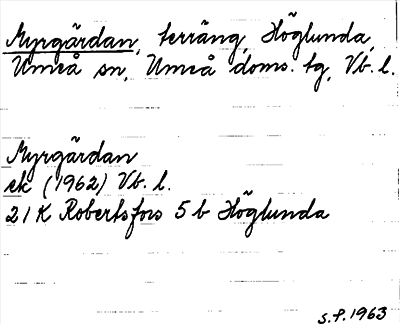 Myrgärdan, terräng, Höglunda,
Umeå sn, Umeå doms. tg, Vb. l.
Myrgärdan
ek (1962) Vb. l.
21 K Robertsfors 5 b Höglunda
s.f. 1963